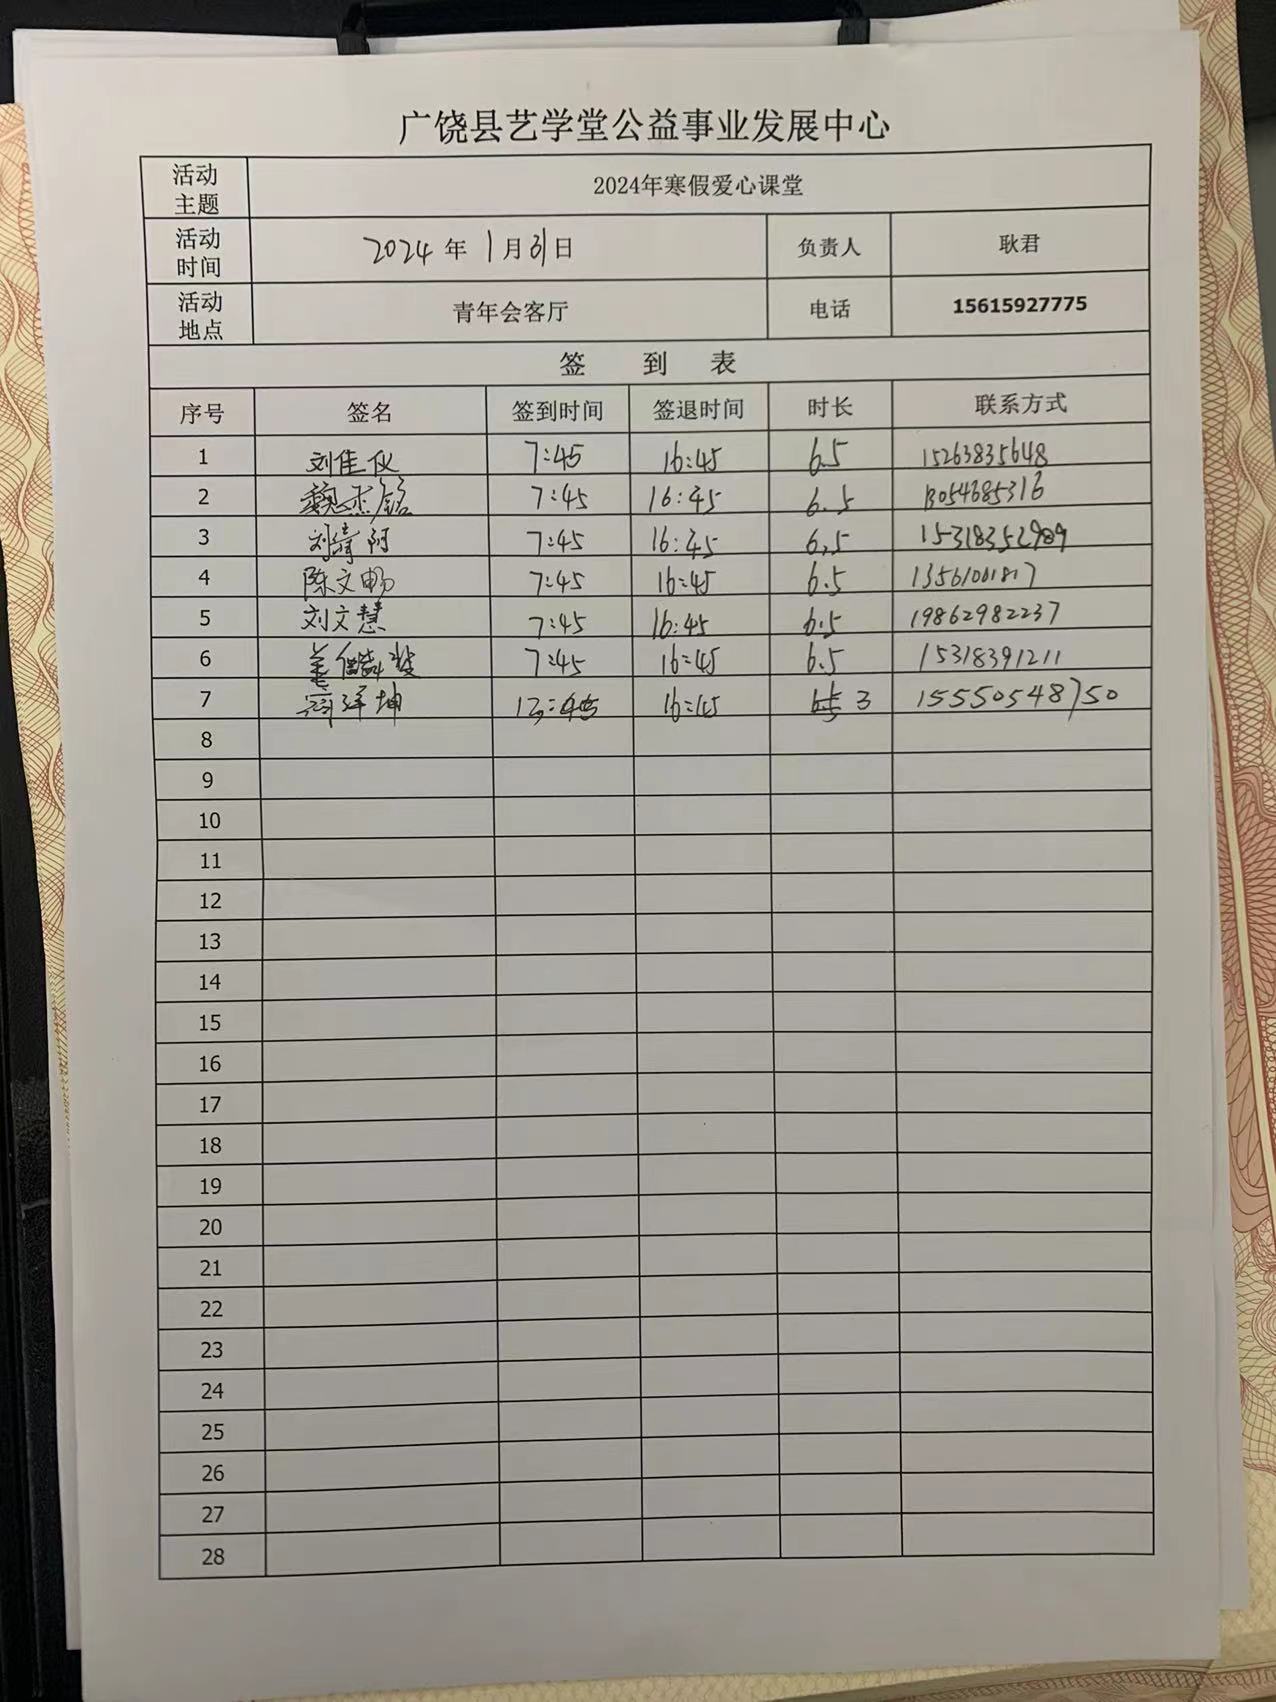 广饶县艺学堂公益事业发展中心
活动主题 2024年寒假爱心课堂
活动时间 2024年1月31日 负责人 耿君
活动地点 青年会客厅 电话 15615927775
签到表
序号 签名 签到时间 签退时间 时长 联系方式
1 刘佳仪 7:45 16:45 6.5 15263835648
2 魏杰铭 7:45 16:45 6.5 13054685316
3 刘 7:45 16:45 6.5 15318352989
4 陈文畅 7:45 16:45 6.5 13561001817
5 刘文慧 7:45 16:45 6.5 19862982237
6 7:45 16:45 6.5 15318391211
7 坤 16:45 3 15550548750
8
9
10
11
12
13
14
15
16
17
18
19
20
21
22
23
24
25
26
27
28